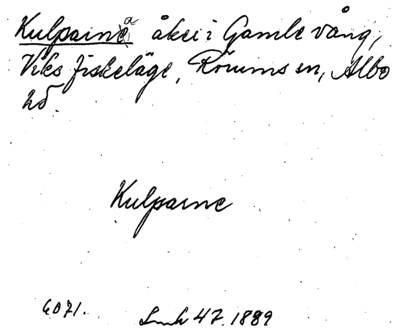 Kulparne åker i Gamle vång,
Viks fiskeläge, Rörums sn, Albo
hd.
Kulparne
6071. Lmh 47. 1889